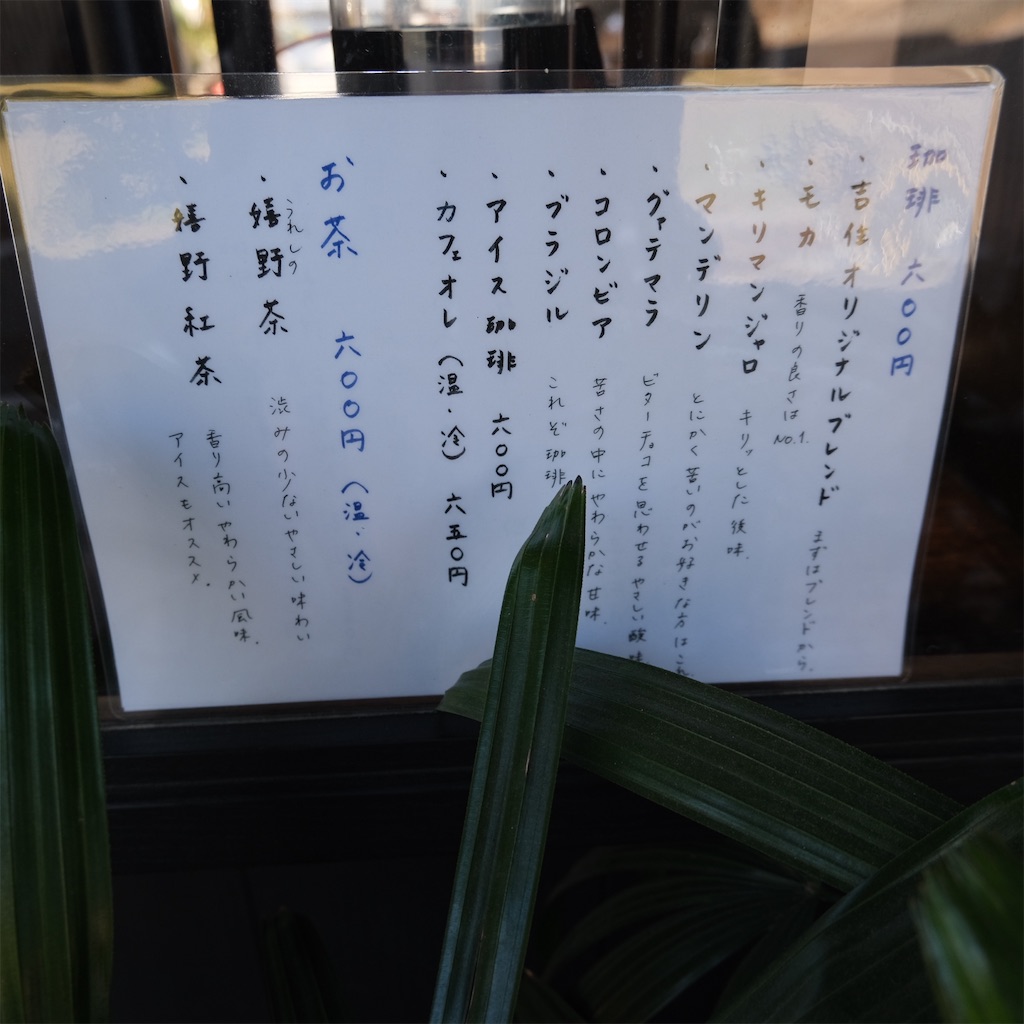 珈琲 六〇〇円
・吉住オリジナルブレンド まずはブレンドから。
・モカ 香りの良さは No.1.
・キリマンジャロ キリッとした後味。
・マンデリン とにかく苦いのがお好きな方はこれ
・グァテマラ ビターチョコを思わせるやさしい酸味
・コロンビア 苦さの中にやわらかな甘味。
・ブラジル これぞ珈琲
・アイス珈琲 六〇〇円
・カフェオレ(温・冷) 六五〇円
お茶 六〇〇円(温・冷)
うれしの
・嬉野茶 渋みの少ないやさしい味わい
・嬉野紅茶 香り高いやわらかい風味。
アイスもオススメ。